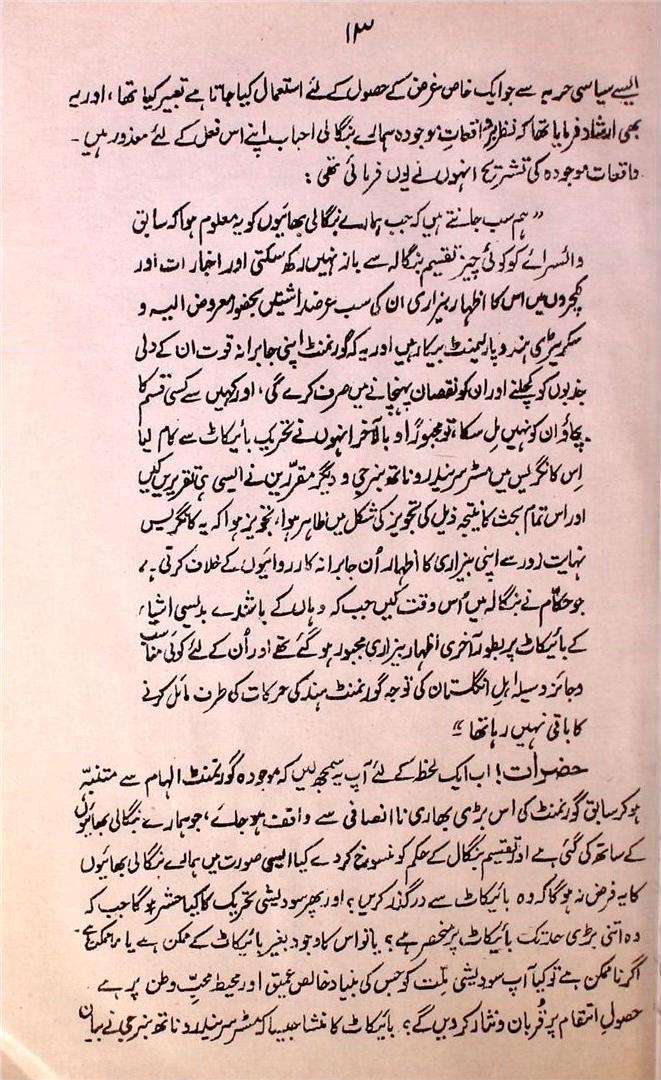 ۱۳
ایسے سیاسی حربہ سے جو ایک خاص غرض کے حصول کے لئے استعمال کیا جاتا ہے تعبیر کیا تھا، اور یہ
بھی ارشاد فرمایا تھا کہ نظر بر واقعات موجودہ ہمارے بنگالی احباب اپنے اس فعل کے لئے معذور ہیں۔
واقعات موجودہ کی تشریح انہوں نے یوں فرمائی تھی:
”ہم سب جانتے ہیں کہ جب ہمارے بنگالی بھائیوں کو یہ معلوم ہوا کہ سابق
وائسرائے کو کوئی چیز تقسیم بنگالہ سے باز نہیں رکھ سکتی اور اخبارات اور
لکچروں میں اس کا اظہار بیزاری ان کی سب عرضداشتیں بحضور معروض الیہ و
سکریٹری ہند و پارلیمنٹ بیکار ہیں اور یہ کہ گورنمنٹ اپنی جابرانہ قوت ان کے دلی
جذبوں کو کچلنے اور ان کو نقصان پہنچانے میں صرف کرے گی، اور کہیں سے کسی قسم کا
بچاؤ ان کو نہیں مل سکا، تو مجبوراً و بالآخر انہوں نے تحریک بائیکاٹ سے کام لیا
اِس کانگریس میں مسٹر سریندرو ناتھ بنرجی و دیگر مقررین نے ایسی ہی تقریریں کیں
اور اس تمام بحث کا نتیجہ ذیل کی تجویز کی شکل میں ظاہر ہوا، تجویز ہوا کہ یہ کانگریس
نہایت زور سے اپنی بیزاری کا اظہار اُن جابرانہ کارروائیوں کے خلاف کرتی ہے،
جو حکام نے بنگالہ میں اُس وقت کیں جب کہ وہاں کے باشندے بدیسی اشیاء
کے بائیکاٹ پر بطور آخری اظہار بیزاری مجبور ہو گئے تھے اور اُن کے لئے کوئی مناسب
و جائز وسیلہ اہل انگلستان کی توجہ گورنمنٹ ہند کی حرکات کی طرف مائل کرنے
کا باقی نہیں رہا تھا“
حضرات! اب ایک لحظہ کے لئے آپ یہ سمجھ لیں کہ موجودہ گورنمنٹ الہام سے متنبہ
ہو کر سابق گورنمنٹ کی اس بڑی بھاری ناانصافی سے واقف ہو جائے، جو ہمارے بنگالی بھائیوں
کے ساتھ کی گئی ہے اور تقسیم بنگال کے حکم کو منسوخ کر دے کیا ایسی صورت میں ہمارے بنگالی بھائیوں
کا یہ فرض نہ ہو گا کہ وہ بائیکاٹ سے درگذر کریں؟ اور پھر سودیشی تحریک کا کیا حشر ہو گا جب کہ
وہ اتنی بڑی حد تک بائیکاٹ پر منحصر ہے؟ یا تو اس کا وجود بغیر بائیکاٹ کے ممکن ہے یا ناممکن ہے۔
اگر ناممکن ہے تو کیا آپ سودیشی ملت کو جس کی بنیاد خالص عمیق اور محیط محبِّ وطن پر ہے
حصولِ انتقام پر قُربان و نثار کر دیں گے؟ بائیکاٹ کا منشا جیسا کہ مسٹر سریندرو ناتھ بنرجی نے بیان